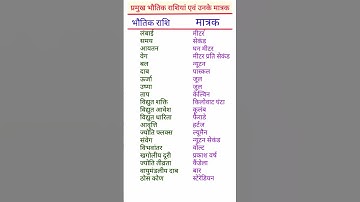 प्रमुख भौतिक राशियां एवं उनके मात्रक
भौतिक राशि मात्रक
लंबाई मीटर
समय सेकंड
आयतन घन मीटर
वेग मीटर प्रति सेकंड
बल न्यूटन
दाब पास्कल
ऊर्जा जूल
उष्मा जूल
ताप केल्विन
विद्युत शक्ति किलोवाट घंटा
विद्युत आवेश कूलंब
विद्युत धारिता फैराडे
आवृत्ति हर्टज
ज्योति फ्लक्स ल्यूमैन
संवेग न्यूटन सेकंड
विभवांतर वोल्ट
खगोलीय दूरी प्रकाश वर्ष
ज्योति तीव्रता कैंडेला
वायुमंडलीय दाब बार
ठोस कोण स्टेरेडियन